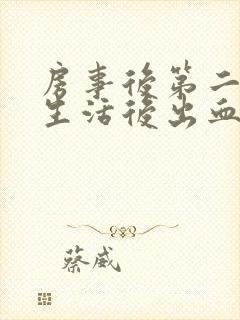 房事後第二
生活後出血
蔡威